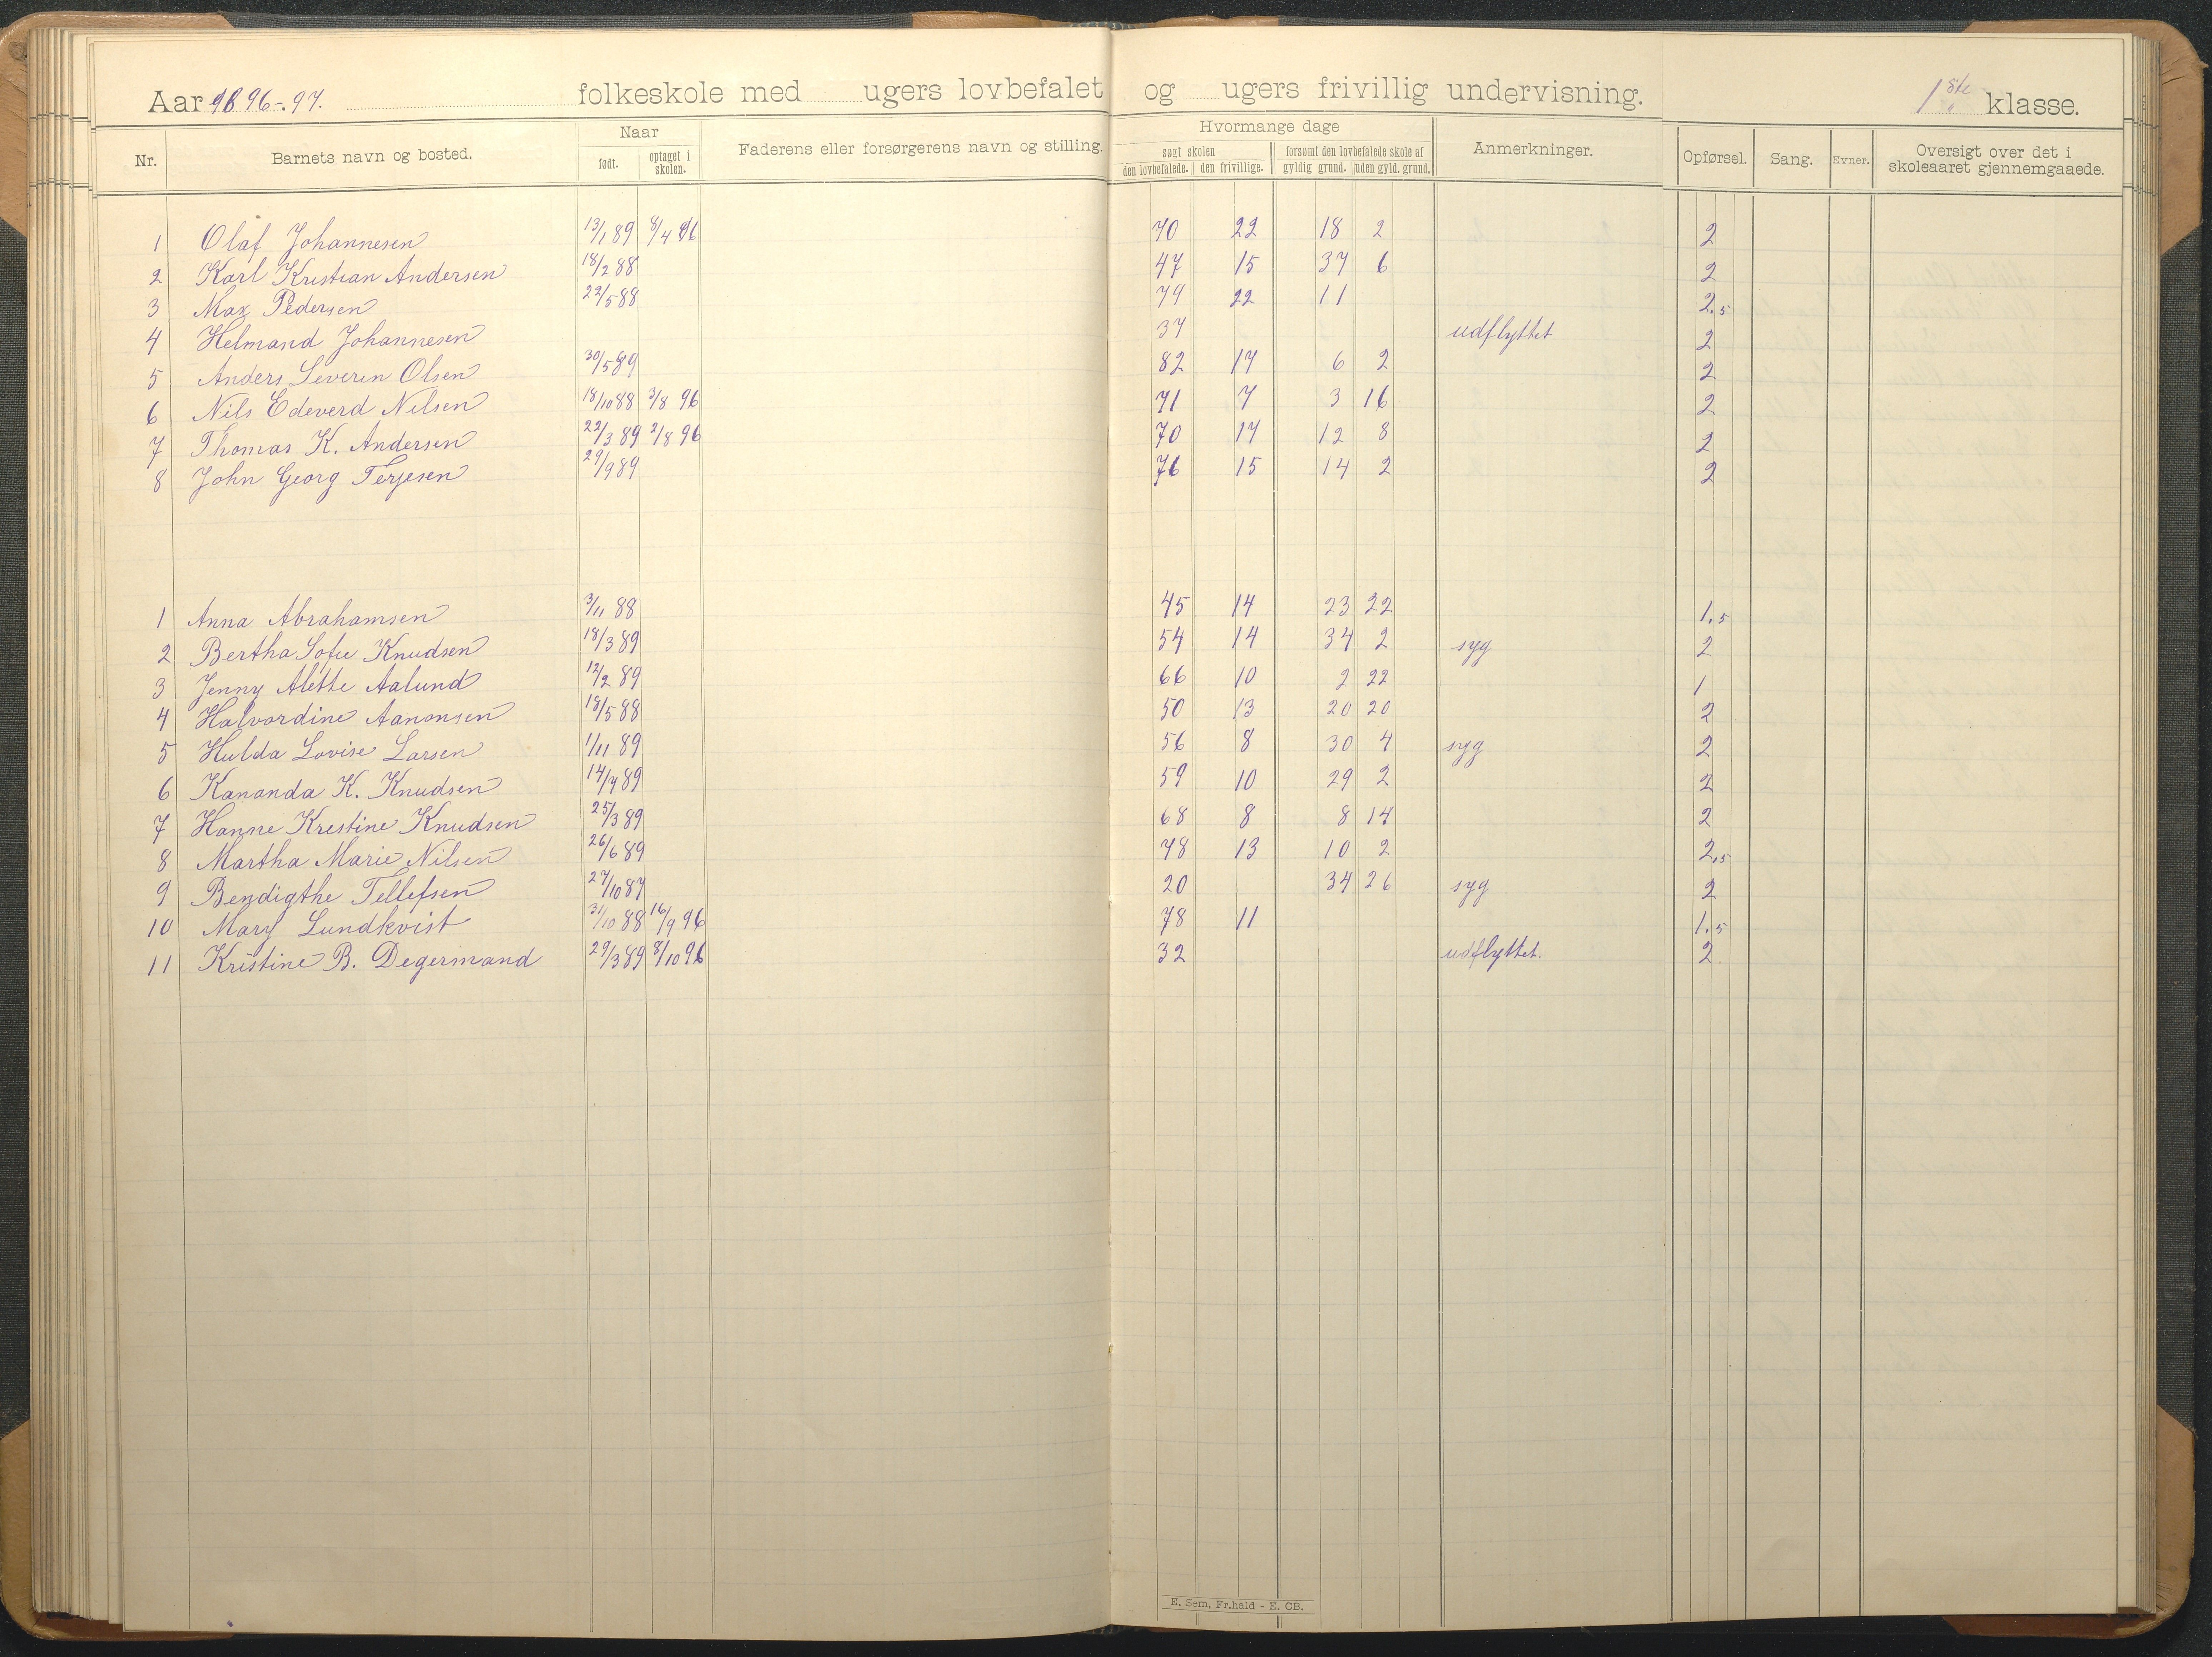 Aar 1896-97. folkeskole med ugers lovbefalet og ugers frivillig undervisning. 1ste klasse.
Nr. Barnets navn og bosted. Naar født. optaget i skolen. Faderens eller forsørgerens navn og stilling. Hvormange dage søgt skolen den lovbefalede. den frivillige. forsømt den lovbefalede skole af gyldig grund. uden gyld. grund. Anmerkninger. Opførsel. Sang. Evner. Oversigt over det i skoleaaret gjennemgaaede.
1 Olaf Johannesen 13/1 89 8/4 96 70 22 18 2 2
2 Karl Kristian Andersen 18/2 88 47 15 37 6 2
3 Max Pedersen 22/5 88 79 22 11 2.5
4 Helmand Johannesen 37 udflyttet 2
5 Anders Severin Olsen 30/5 89 82 17 6 2 2
6 Nils Edeverd Nilsen 18/10 88 3/8 96 71 7 3 16 2
7 Thomas K. Andersen 22/3 89 2/8 96 70 17 12 8 2
8 John Georg Terjesen 29/9 89 76 15 14 2 2
1 Anna Abrahamsen 3/11 88 45 14 23 22 1.5
2 Bertha Sofie Knudsen 18/3 89 54 14 34 2 syg 2
3 Jenny Alette Aalund 12/2 89 66 10 2 22 1
4 Halvordine Aanonsen 18/5 88 50 13 20 20 2
5 Hulda Lovise Larsen 1/11 89 56 8 30 4 syg 2
6 Kananda K. Knudsen 14/7 89 59 10 29 2 2
7 Hanne Krestine Knudsen 25/3 89 68 8 8 14 2
8 Martha Marie Nilsen 26/6 89 78 13 10 2 2.5
9 Bendigthe Tellefsen 27/10 87 20 34 26 syg 2
10 Mary Lundkvist 31/10 88 16/9 96 78 11 1.5
11 Kristine B. Degermand 29/3 89 8/10 96 32 udflyttet. 2
E. Sem, Fr.hald - E. CB.